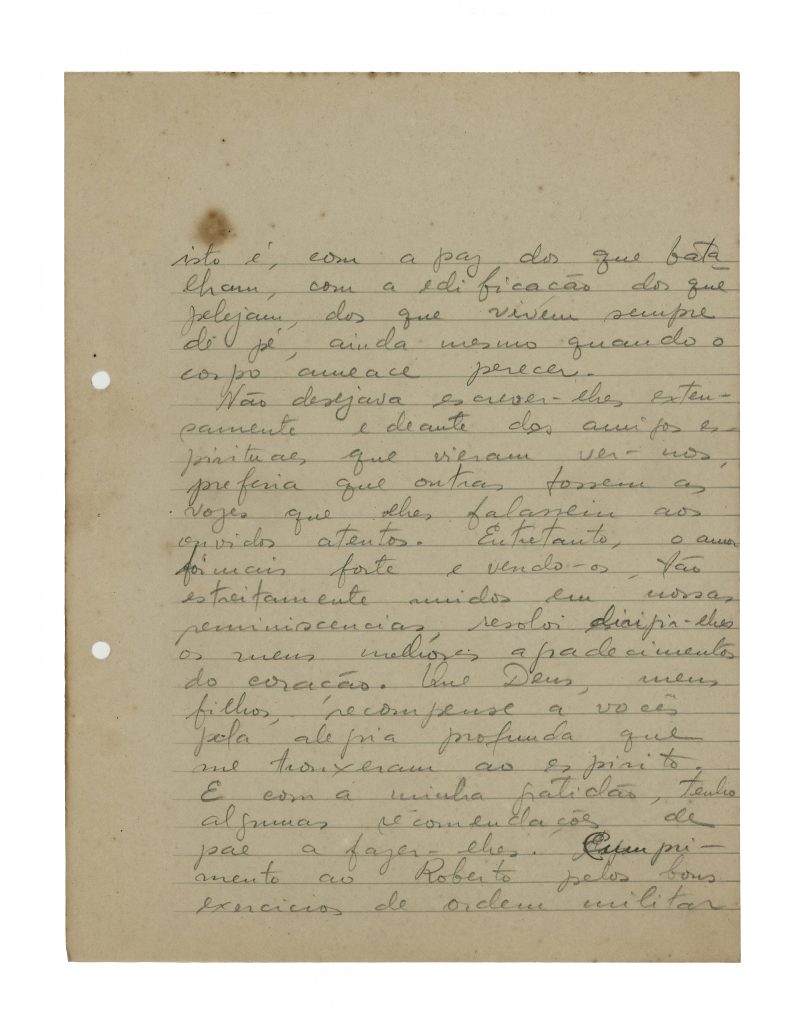 isto é, com a paz dos que bata
lham, com a edificação dos que
pelejam, dos que vivem sempre
de pé, ainda mesmo quando o
corpo ameace perecer.
Não desejava escrever-lhes exten-
samente e deante dos amigos es-
pirituaes que vieram ver-nos,
preferia que outras fossem as
vozes que lhes falassem aos
ouvidos atentos. Entretanto, o amor
foi mais forte e vendo-os, tão
estreitamente unidos em nossas
reminiscencias, resolvi dirigir-lhes
os meus melhores agradecimentos
do coração. Que Deus, meus
filhos, recompense a vocês
pela alegria profunda que
me trouxeram ao espirito.
E com a minha gratidão, tenho
algumas recomendações de
pae a fazer-lhes. Cumpri-
mento ao Roberto pelos bons
exercicios de ordem militar